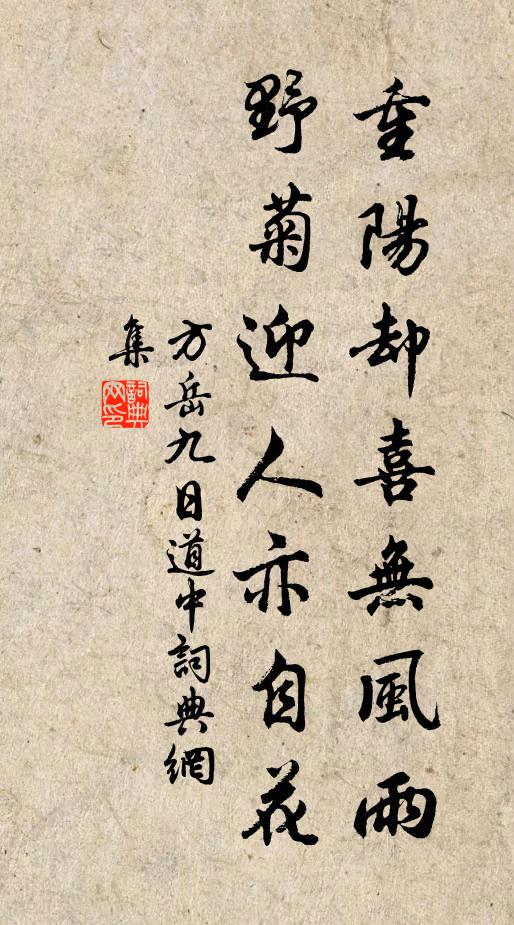 重陽却喜無風雨
野菊迎人亦自花
方岳九日道中詞典網
集
詞典
网印